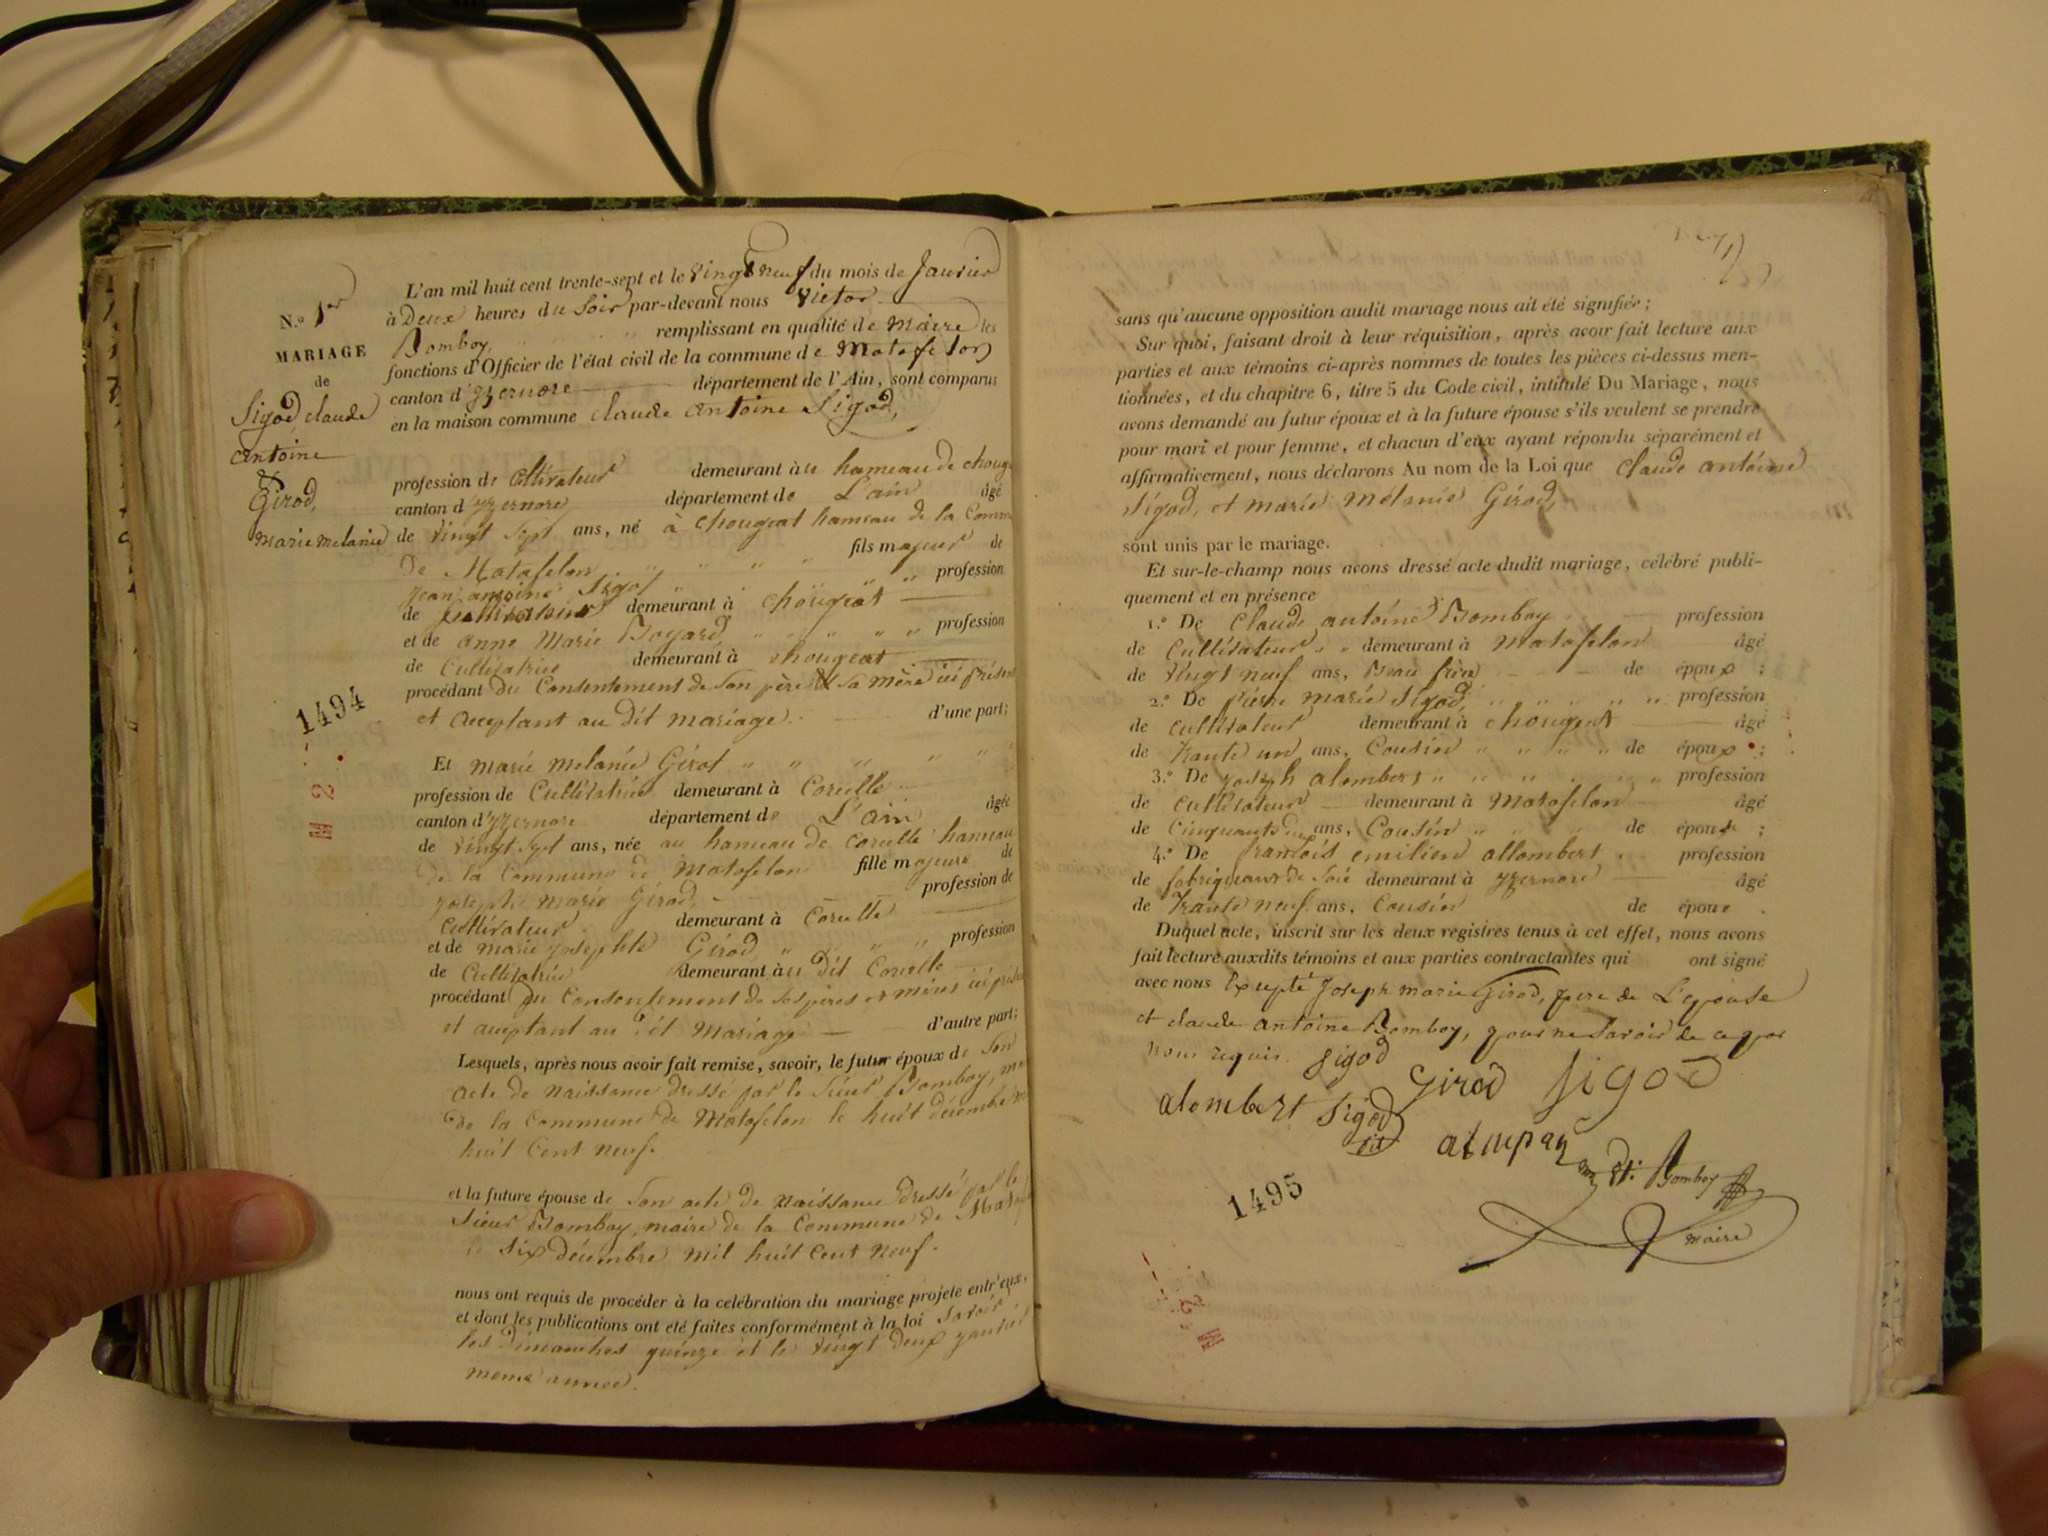 N.o 1er
MARIAGE
de
Sigod, claude
antoine
&
Girod,
marie melanie
1494
M 2
L'an mil huit cent trente-sept et le vingt neuf du mois de Janvier
à Deux heures du Soir par-devant nous Victor
Bomboy, remplissant en qualité de Maire les
fonctions d'Officier de l'état civil de la commune de Matafelon
canton d'yzernore département de l'Ain, sont comparus
en la maison commune claude antoine Sigod,
profession de Cultivateur demeurant au hameau de choug
canton d'yzernore département de L'ain âgé
de vingt sept ans, né à chougeat hameau de la Comm
De Matafelon fils majeur de
jean antoine Sigot profession
de Cultivateur demeurant à chougeat
et de anne Marie Boyard, profession
de Cultivatrice demeurant à chougeat
procédant du Consentement de son père & sa mère ici présent
et acceptant au Dit mariage d'une part;
Et marie melanie Girot
profession de Cultivatrice demeurant à Corcelle
canton d'yzernore département de L'ain âgée
de vingt sept ans, née au hameau de corcelle hameau
de la Commune de Matafelon fille majeure de
joseph marie Girod, profession de
Cultivateur demeurant à Corcelle
et de marie josephte Girod profession
de Cultivatrice demeurant au Dit Corcelle
procédant du Consentement de ses pères et mères ici prése
et acceptant au dit Mariage d'autre part;
Lesquels, après nous avoir fait remise, savoir, le futur époux de Son
acte de naissance dressé par le Sieur Bomboy, m
de la Commune de Matafelon le huit décembre m
huit Cent neuf.
et la future épouse de Son acte de Naissance dressé par le
Sieur Bomboy, maire de la Commune de Mataf
le Six décembre mil huit Cent neuf.
nous ont requis de procéder à la celébration du mariage projeté entr'eux,
et dont les publications ont été faites conformément à la loi Savoir
les Dimanches quinze et le vingt deux janvier
meme année.
sans qu'aucune opposition audit mariage nous ait été signifiée;
Sur quoi, faisant droit à leur réquisition, après avoir fait lecture aux
parties et aux témoins ci-après nommés de toutes les pièces ci-dessus men-
tionnées, et du chapitre 6, titre 5 du Code civil, intitulé Du Mariage, nous
avons demandé au futur époux et à la future épouse s'ils veulent se prendre
pour mari et pour femme, et chacun d'eux ayant répondu séparément et
affirmativement, nous déclarons Au nom de la Loi que claude antoine
Sigod, et marie Mélanie Girod,
sont unis par le mariage.
Et sur-le-champ nous avons dressé acte dudit mariage, célébré publi-
quement et en présence
1.o De Claude antoine Bomboy profession
de Cultivateur demeurant à Matafelon âgé
de vingt neuf ans, Beau frère de époux ;
2.o De pierre marie Sigod, profession
de cultivateur demeurant à chougeat âgé
de trante un ans, Cousin de époux ;
3.o De joseph alombert profession
de Cultivateur demeurant à Matafelon âgé
de Cinquante ans, Cousin de épouse ;
4.o De françois emilien allombert profession
de fabriquant de Soie demeurant à yzernore âgé
de trante neuf ans, Cousin de épouse .
Duquel acte, inscrit sur les deux registres tenus à cet effet, nous avons
fait lecture auxdits témoins et aux parties contractantes qui ont signé
avec nous Excepté Joseph marie Girod, pere de L'epouse
et claude antoine Bomboy, pour ne Savoir de ce par
nous requis. Sigod
Girod Sigod
alombert Sigod
Vr Bomboy
maire
1495
M 2